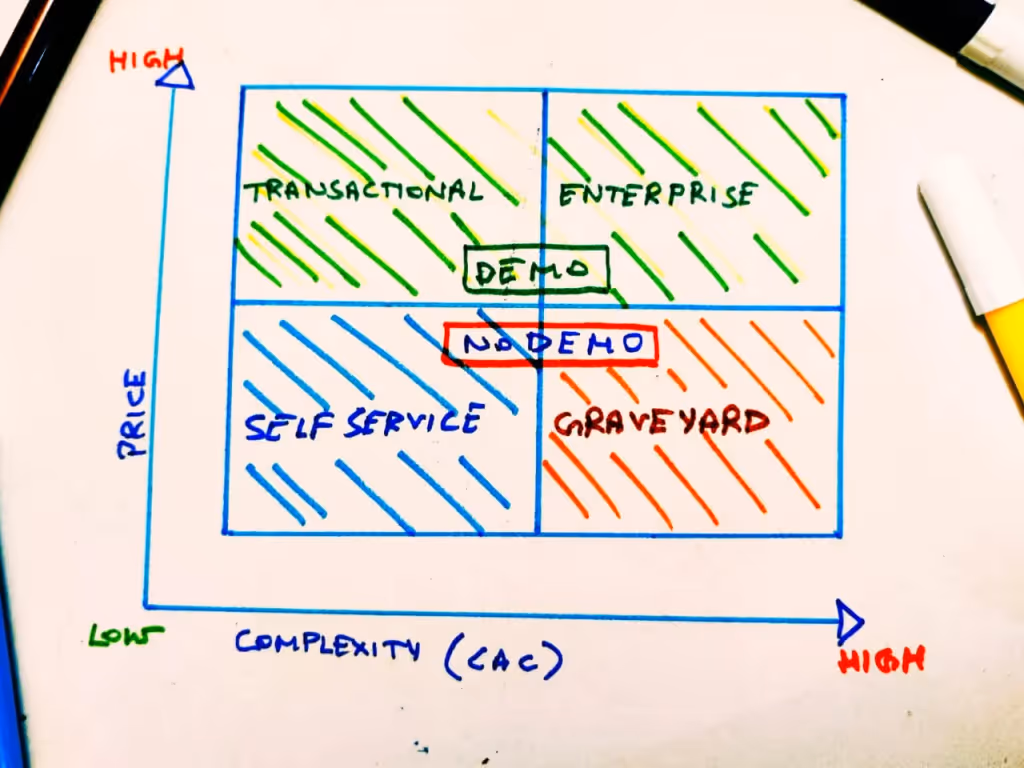 HIGH
TRANSACTIONAL
ENTERPRISE
DEMO
NO DEMO
PRICE
SELF SERVICE
GRAVEYARD
LOW
COMPLEXITY (CAC)
HIGH